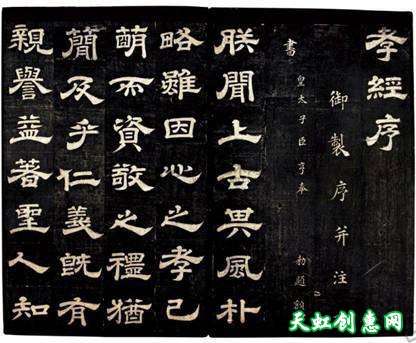 孝經序
御製序并注
皇太子臣亨奉 勅題額
書
朕聞上古其風朴
略雖因心之孝已
萌而資敬之禮猶
簡及乎仁義既有
親譽益著聖人知
天虹创惠网